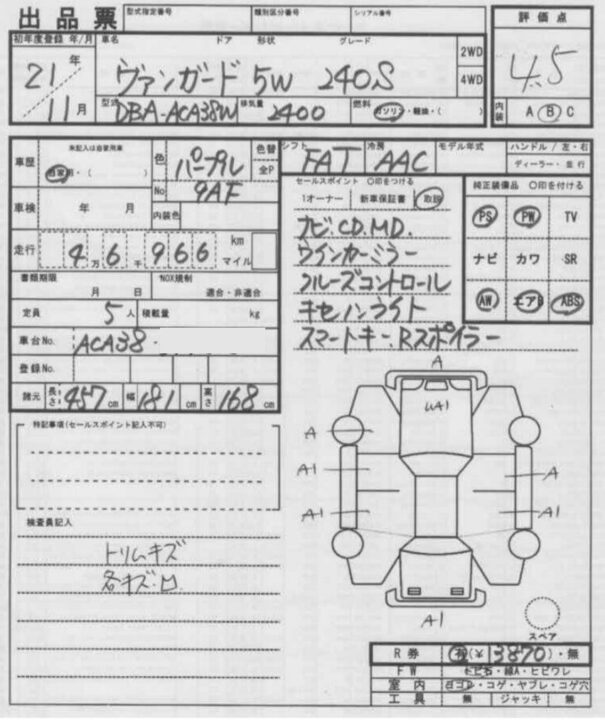 出品票 型式指定番号 類別区分番号 シリアル番号 評価点
初年度登録 年/月 車名 ドア 形状 グレード 2WD
21年 ヴァンガード 5W 240S 4WD 4.5
11月 型式 DBA-ACA38W 排気量 2400 燃料 ガソリン・軽油・( ) 内装 A B C
車歴 未記入は自家用車 自家用・( ) 色 パープル 色替 全P シフト FAT 冷房 AAC モデル年式 ハンドル / 左・右
ディーラー・並行
No 9AF セールスポイント ○印をつける 純正装備品 ○印を付ける
車検 年 月 内装色 1オーナー 新車保証書 取説 PS PW TV
走行 4万6千966 km マイル ナビ.CD.MD. ナビ カワ SR
ウインカーミラー
書類期限 月 日 NOX規制 適合・非適合 クルーズコントロール AW エアB ABS
定員 5人 積載量 kg キセノンライト
車台No. ACA38- スマートキー.Rスポイラー
登録No.
諸元 長さ 457cm 幅 181cm 高さ 168cm
A
UA1
特記事項(セールスポイント記入不可) A
A1 A
A1 A1
検査員記入
トリムキズ
各キズ.
A1
スペア
R券 有(¥13870)・無
FW トビ石・線A・ヒビワレ
室内 ヨゴレ・コゲ・ヤブレ・コゲ穴
工具 無 ジャッキ 無